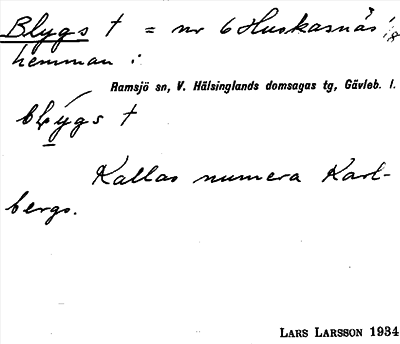 Blygs † = nr 6 Huskasnås i s
hemman i
Ramsjö sn, V. Hälsinglands domsagas tg, Gävleb. l.
blýgs †
Kallas numera Karl-
bergs.
LARS LARSSON 1934